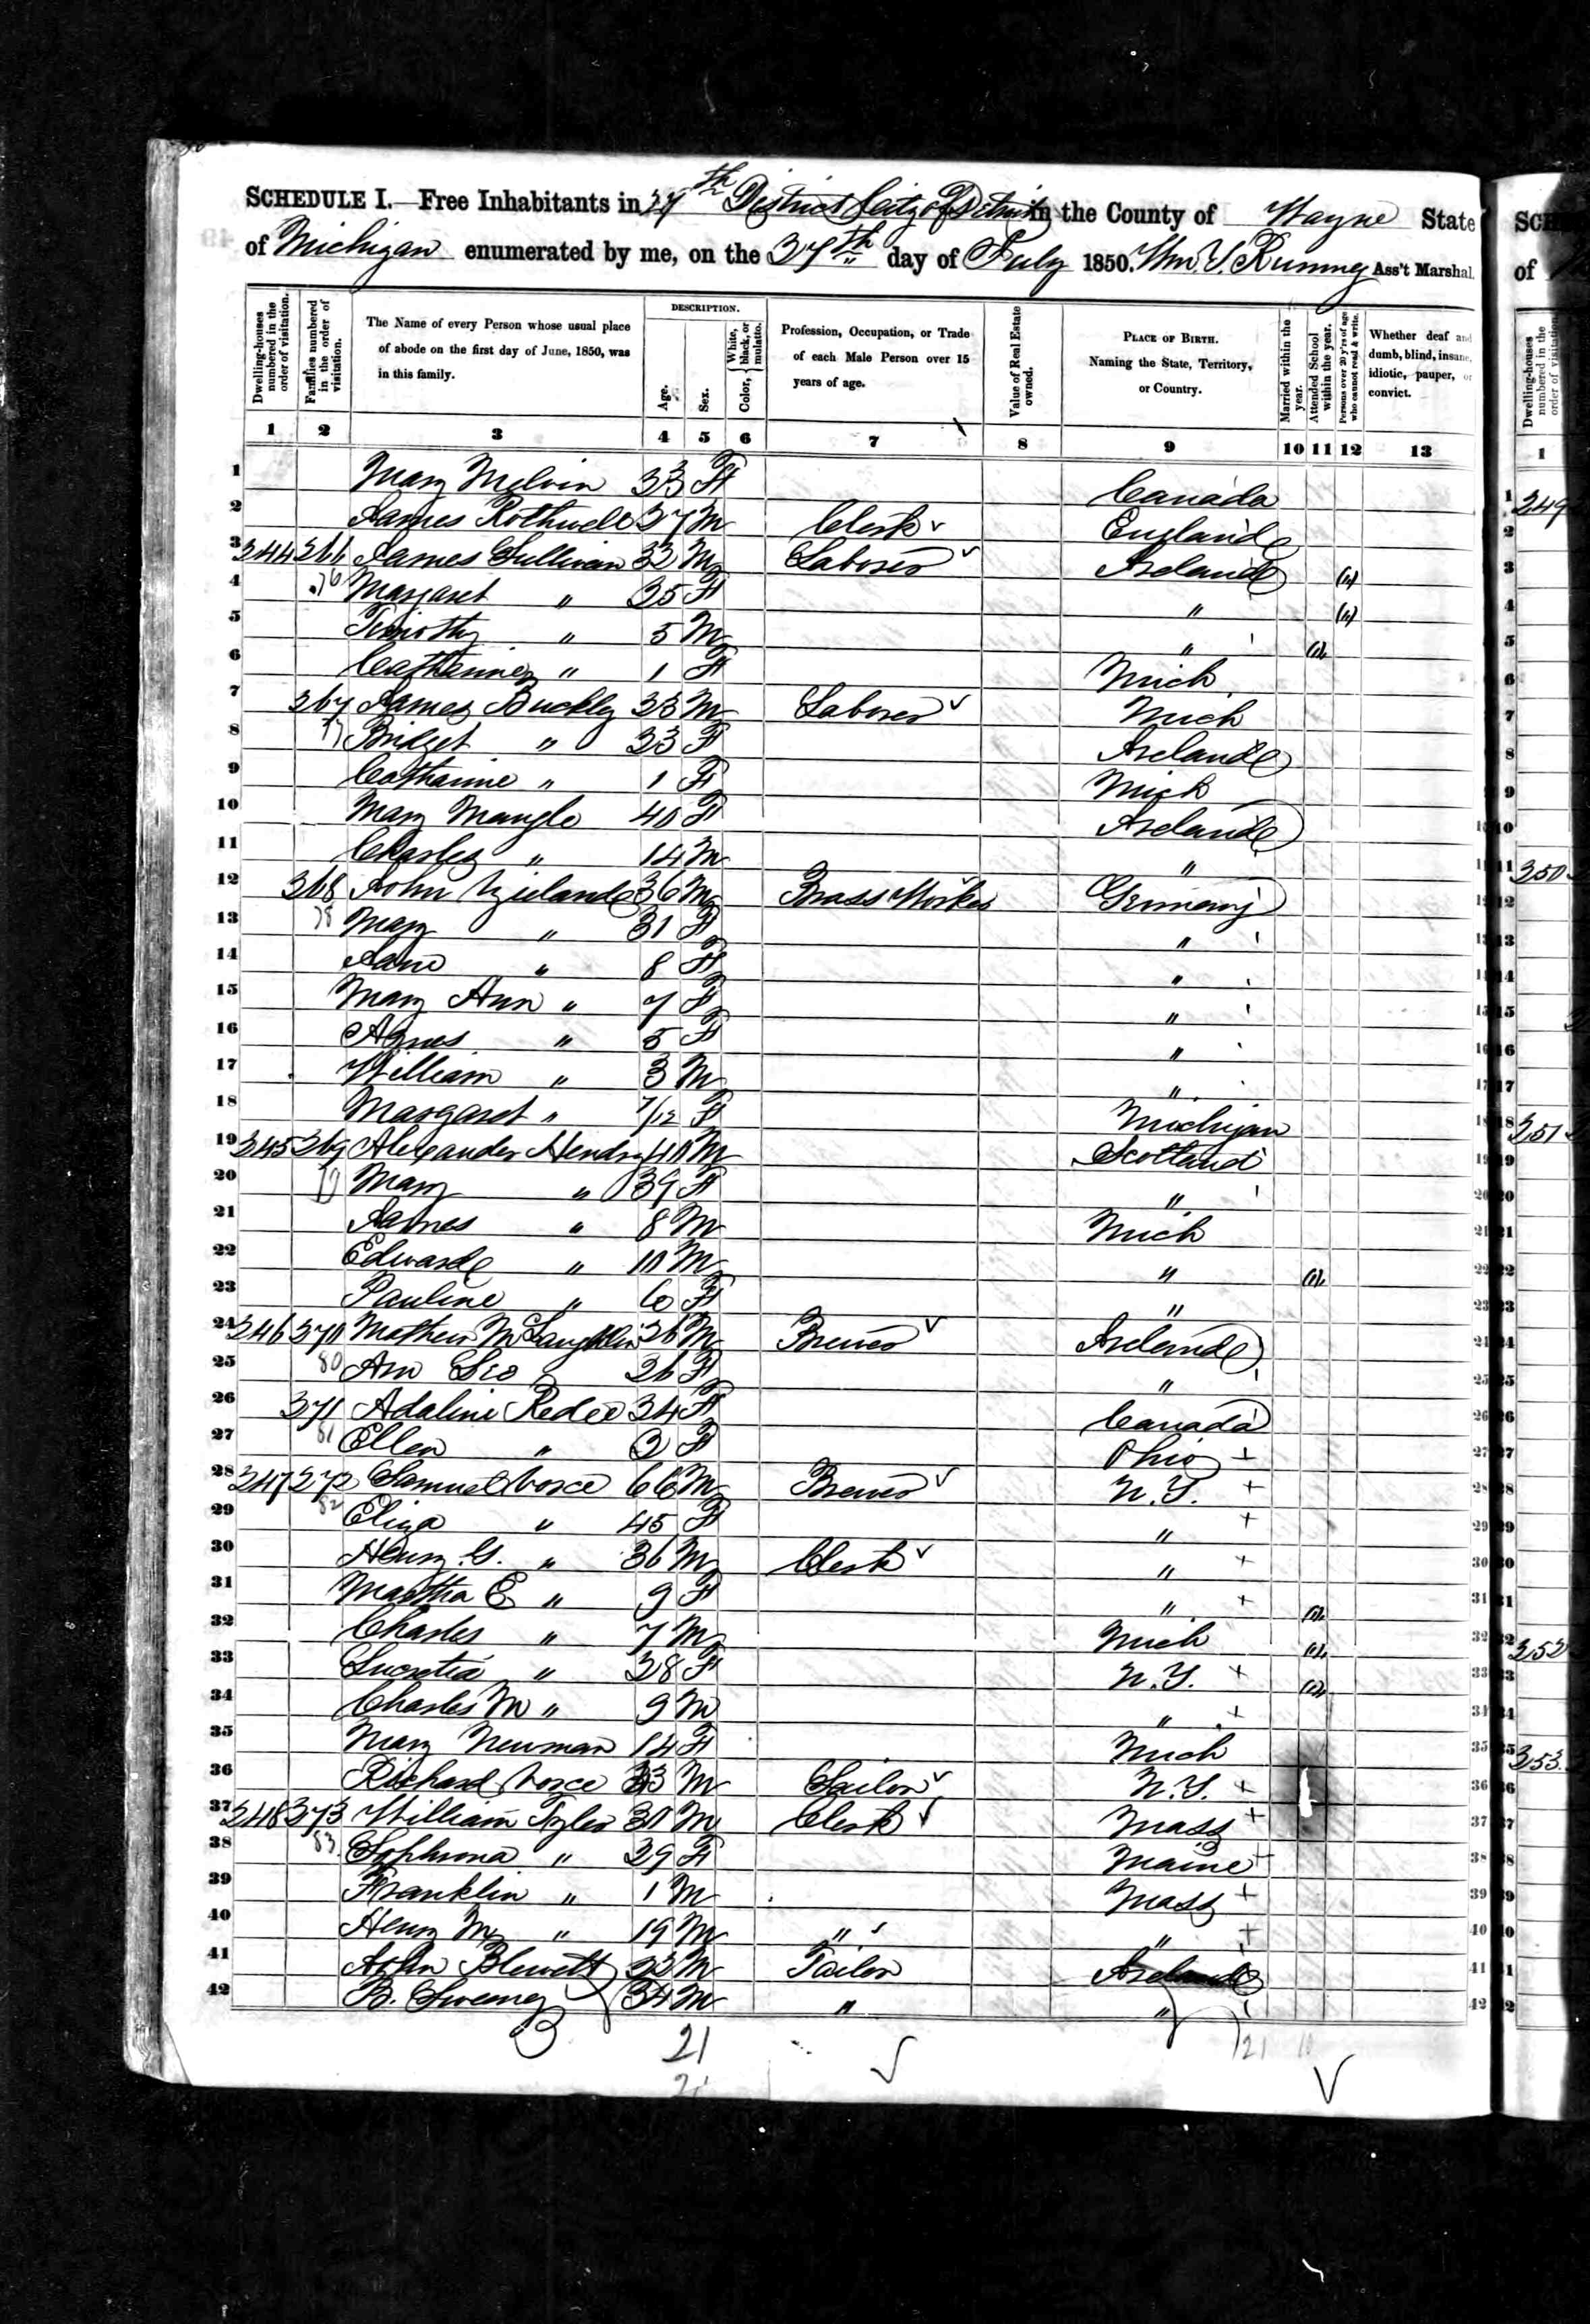 SCHEDULE I.—Free Inhabitants in 27th District City of Detroit in the County of Wayne State
of Michigan enumerated by me, on the 27th day of July 1850. Wm. S. Rumney Ass't Marshal.
Dwelling-houses numbered in the order of visitation.
Families numbered in the order of visitation.
The Name of every Person whose usual place of abode on the first day of June, 1850, was in this family.
DESCRIPTION.
Age.
Sex.
Color, { White, black, or mulatto.
Profession, Occupation, or Trade of each Male Person over 15 years of age.
Value of Real Estate owned.
PLACE OF BIRTH. Naming the State, Territory, or Country.
Married within the year.
Attended School within the year.
Persons over 20 y'rs of age who cannot read & write.
Whether deaf and dumb, blind, insane, idiotic, pauper, or convict.
1 2 3 4 5 6 7 8 9 10 11 12 13
1 Mary Melvin 33 F Canada
2 James Rothwell 27 M Clerk England
3 244 266 James Sullivan 32 M Laborer Ireland
4 76 Margaret " 25 F "
5 Timothy " 5 M "
6 Catherine " 1 F Mich
7 267 James Buckley 23 M Laborer Mich
8 77 Bridget " 23 F Ireland
9 Catharine " 1 F Mich
10 Mary Mangle 40 F Ireland
11 Charles " 14 M "
12 268 John 36 M Brass Worker Germany
13 78 Mary " 31 F "
14 Jane " 8 F "
15 Mary Ann " 7 F "
16 Agnes " 5 F "
17 William " 3 M "
18 Margaret " 7/12 F Michigan
19 245 269 Alexander Hendry 40 M Scotland
20 79 Mary " 39 F "
21 James " 8 M Mich
22 Edward " 10 M "
23 Pauline " 6 F "
24 246 270 Mathew McLaughlin 26 M Brewer Ireland
25 80 Ann 26 F "
26 271 Adaline 24 F Canada
27 81 Ellen " 2 F Ohio +
28 247 272 Samuel Vorce 66 M Brewer N.Y. +
29 82 Eliza " 45 F " +
30 Henry G. " 36 M Clerk " +
31 Martha E " 9 F " +
32 Charles " 7 M Mich
33 Lucretia " 28 F N.Y. +
34 Charles M " 9 M " +
35 Mary Newman 14 F Mich
36 Richard Vorce 33 M Sailor N.Y. +
37 248 273 William Tyler 30 M Clerk Mass +
38 83 Sophrona " 29 F Maine +
39 Franklin " 1 M Mass +
40 Henry M " 19 M " " +
41 John Blewett 22 M Tailor Ireland
42 B. Sweeney 34 M " "
21
21 10
249
250
251
252
253